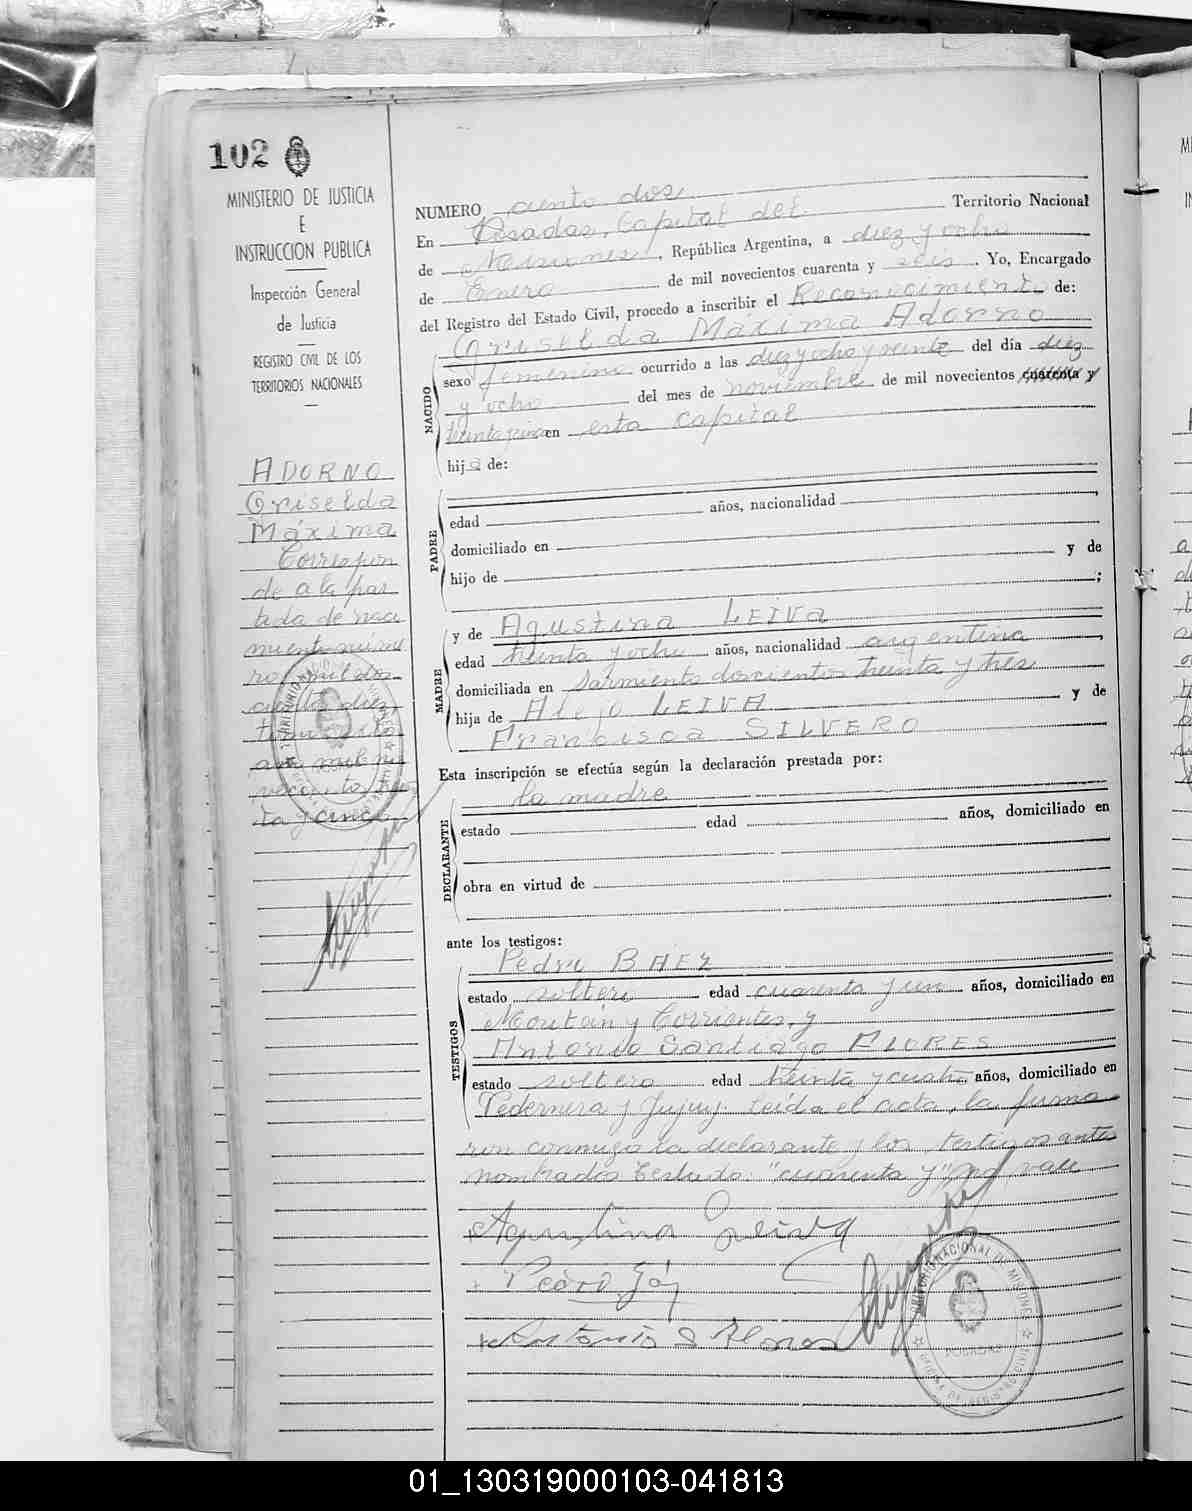 102
MINISTERIO DE JUSTICIA
E
INSTRUCCION PUBLICA
Inspección General
de Justicia
REGISTRO CIVIL DE LOS
TERRITORIOS NACIONALES
ADORNO
Griselda
Máxima
Correspon
de a la par
tida de naci
miento núme
ro mil dos
cientos diez
tomo
año mil no
vecientos trein
ta y cinco
NUMERO ciento dos
En Posadas, Capital del Territorio Nacional
de Misiones, República Argentina, a diez y ocho
de Enero de mil novecientos cuarenta y seis. Yo, Encargado
del Registro del Estado Civil, procedo a inscribir el Reconocimiento de:
Griselda Máxima Adorno
NACIDO
sexo femenino ocurrido a las diez y ocho y veinte del día diez
y ocho del mes de noviembre de mil novecientos cuarenta y
treinta y cinco en esta capital
hija de:
PADRE
edad años, nacionalidad
domiciliado en
hijo de y de
;
MADRE
y de Agustina LEIVA
edad treinta y ocho años, nacionalidad argentina,
domiciliada en Sarmiento doscientos treinta y tres
hija de Alejo LEIVA y de
Francisca SILVERO
Esta inscripción se efectúa según la declaración prestada por:
la madre
DECLARANTE
estado edad años, domiciliado en
obra en virtud de
ante los testigos:
TESTIGOS
Pedro BAEZ
estado soltero edad cuarenta y un años, domiciliado en
y Corrientes, y
Antonio Santiago FLORES
estado soltero edad treinta y cuatro años, domiciliado en
Pedernera y Jujuy. Leída el acta, la firma
ron conmigo la declarante y los testigos antes
nombrados Testado: "cuarenta y" no vale
Agustina Leiva
Pedro
Antonio S Flores
TERRITORIO NACIONAL DE MISIONES
POSADAS
OFICINA DE REGISTRO CIVIL
01_130319000103-041813